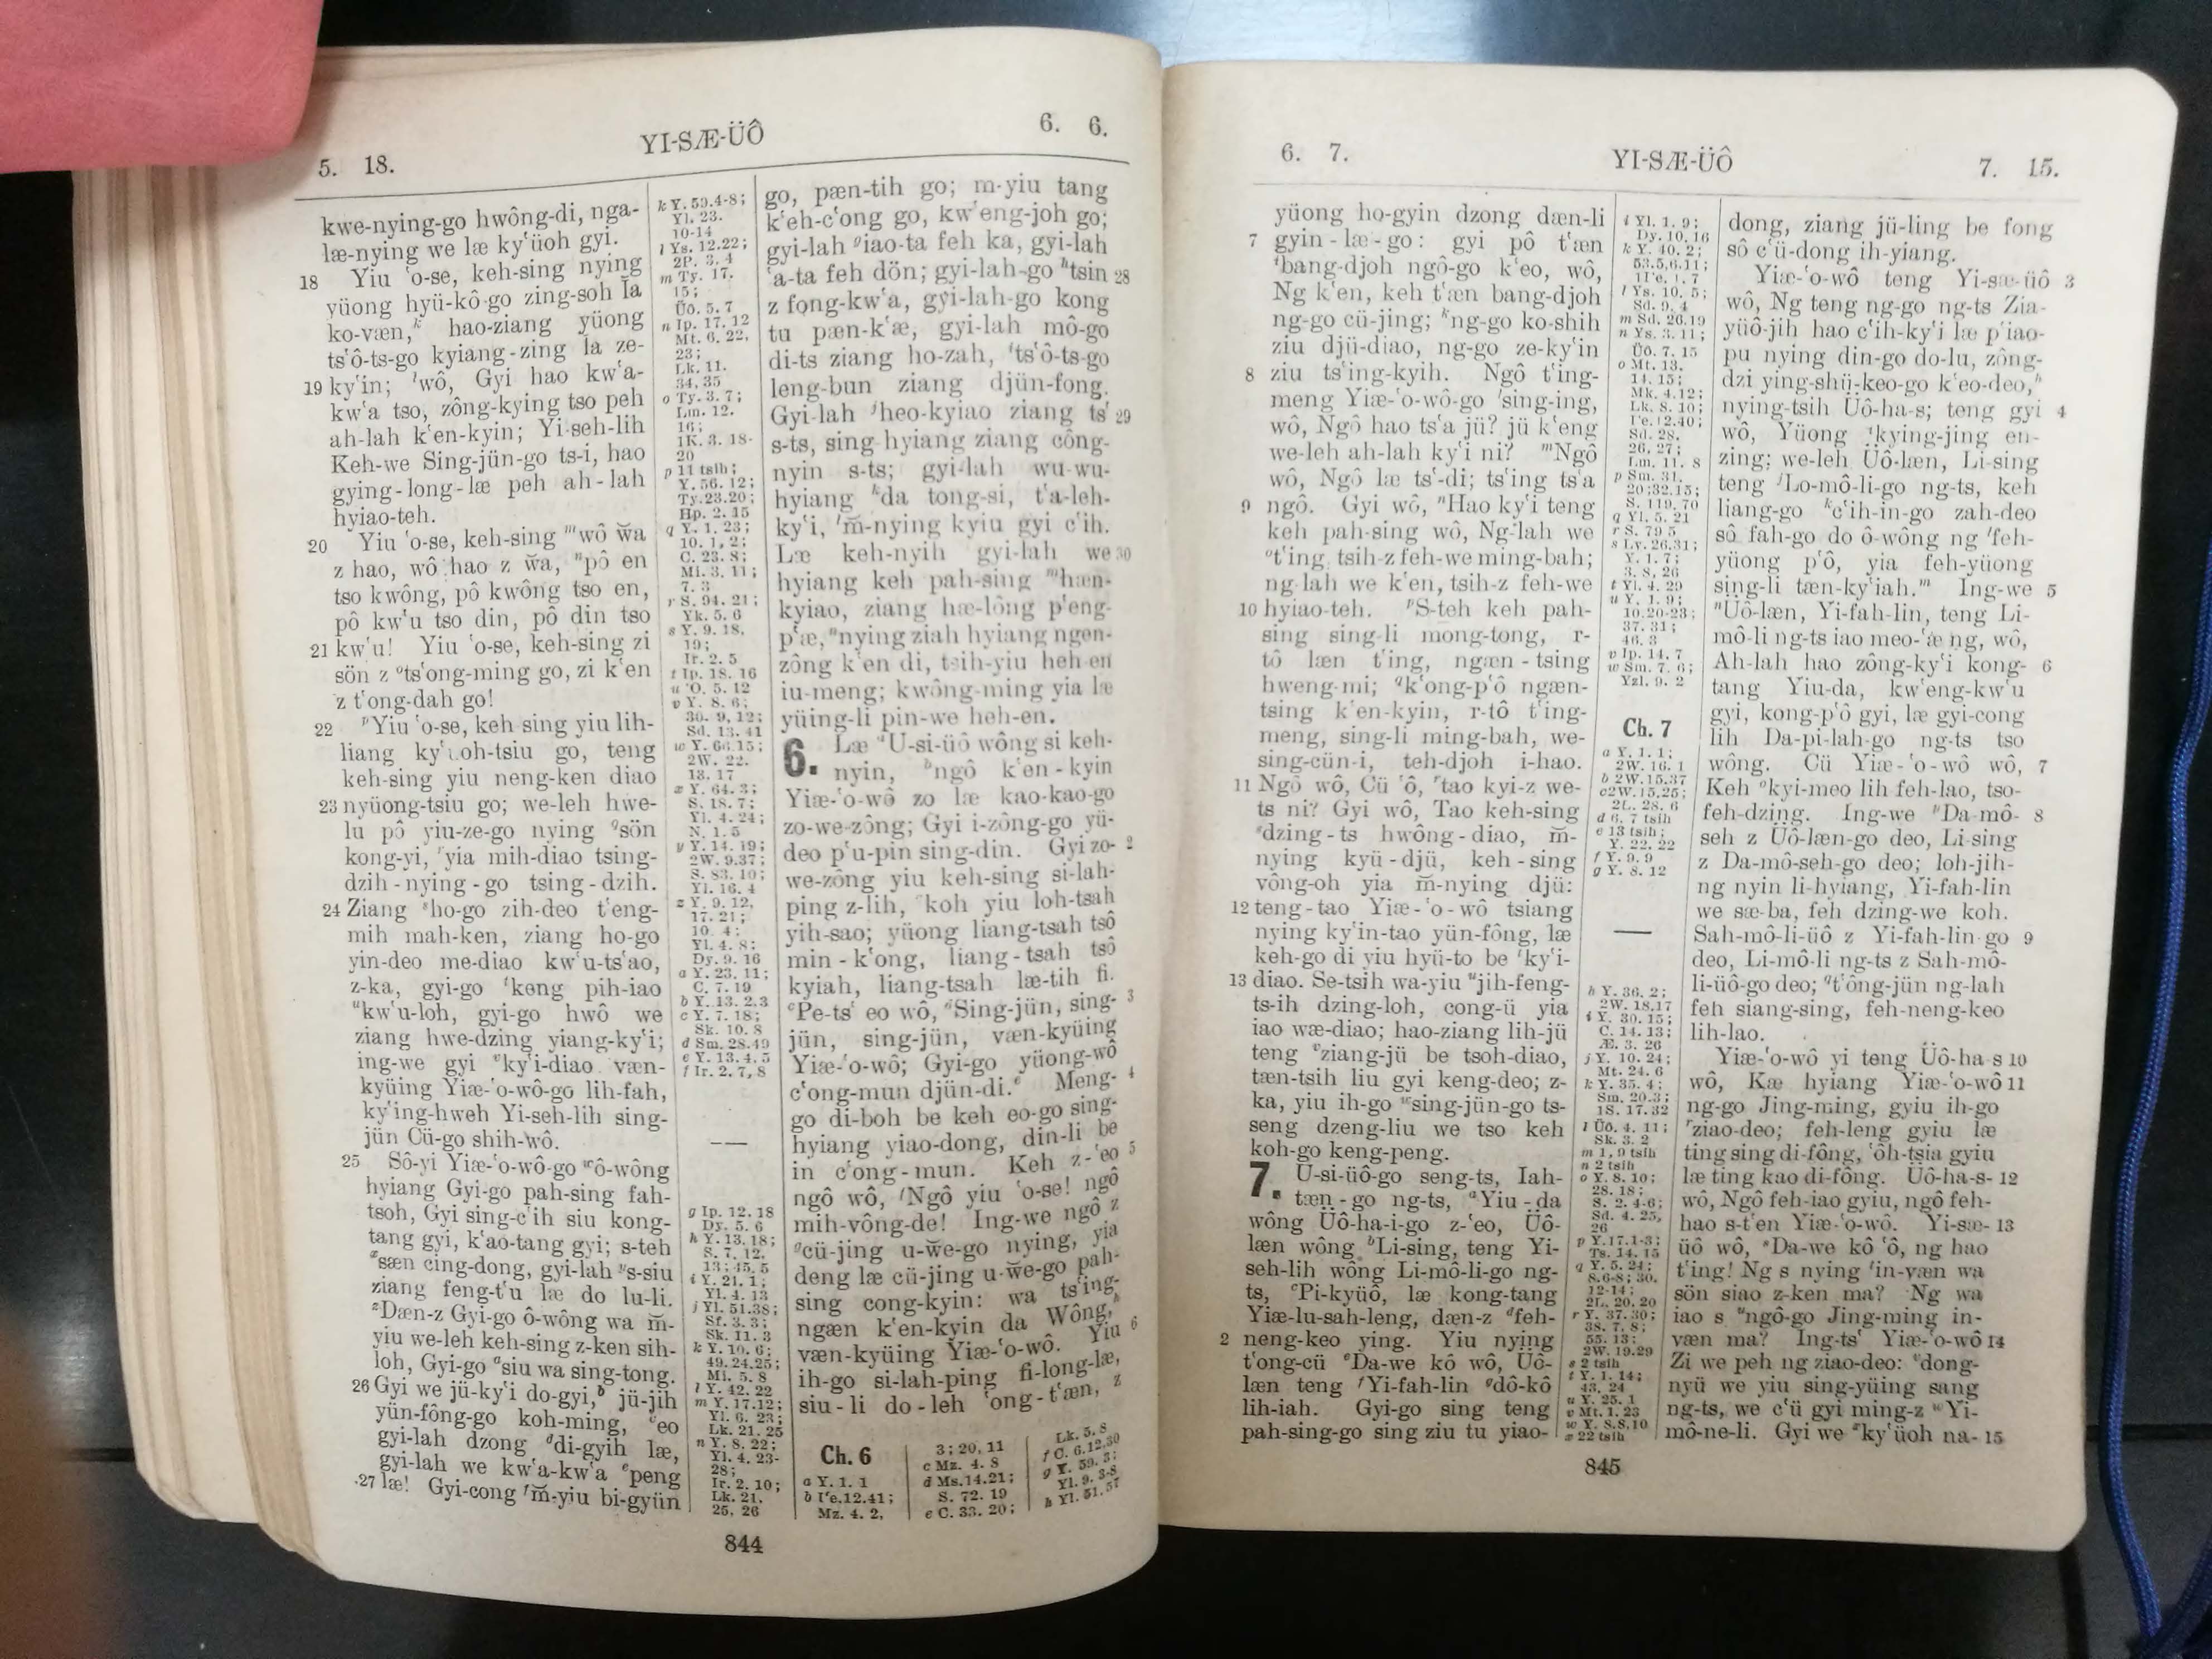 5. 18.
YI-SÆ-ÜÔ
6. 6.
kwe-nying-go hwông-di, nga-
læ-nying we læ ky‘üoh gyi.
18 Yiu ‘o-se, keh-sing nying
yüong hyü-kô-go zing-soh la
ko-væn,ᵏ hao-ziang yüong
ts‘ô-ts-go kyiang-zing la ze-
19 ky‘in; ˡwô, Gyi hao kw‘a-
kw‘a tso, zông-kying tso peh
ah-lah k‘en-kyin; Yi-seh-lih
Keh-we Sing-jün-go ts-i, hao
gying-long-læ peh ah-lah
hyiao-teh.
20 Yiu ‘o-se, keh-sing ᵐwô w̆a
z hao, wô hao z w̆a, ⁿpô en
tso kwông, pô kwông tso en,
pô kw‘u tso din, pô din tso
21 kw‘u! Yiu ‘o-se, keh-sing zi
sön z ᵒts‘ong-ming go, zi k‘en
z t‘ong-dah go!
22 ᵖYiu ‘o-se, keh sing yiu lih-
liang ky‘üoh-tsiu go, teng
keh-sing yiu neng-ken diao
23 nyüong-tsiu go; we-leh hwe-
lu pô yiu-ze-go nying ᵠsön
kong-yi, ʳyia mih-diao tsing-
dzih-nying-go tsing-dzih.
24 Ziang ˢho-go zih-deo t‘eng-
mih mah-ken, ziang ho-go
yin-deo me-diao kw‘u-ts‘ao,
z-ka, gyi-go ᵗkeng pih-iao
ᵘkw‘u-loh, gyi-go hwô we
ziang hwe-dzing yiang-ky‘i;
ing-we gyi ᵛky‘i-diao væn-
kyüing Yiæ-‘o-wô-go lih-fah,
ky‘ing-hweh Yi-seh-lih sing-
jün Cü-go shih-wô.
25 Sô-yi Yiæ-‘o-wô-go ʷô-wông
hyiang Gyi-go pah-sing fah-
tsoh, Gyi sing-c‘ih siu kong-
tang gyi, k‘ao-tang gyi; s-teh
ˣsæn cing-dong, gyi-lah ʸs-siu
ziang feng-t‘u læ do lu-li.
ᶻDæn-z Gyi-go ô-wông wa m̆-
yiu we-leh keh-sing z-ken sih-
loh, Gyi-go ᵃsiu wa sing-tong.
26 Gyi we jü-ky‘i do-gyi,ᵇ jü-jih
yün-fông-go koh-ming, ᶜeo
gyi-lah dzong ᵈdi-gyih læ,
gyi-lah we kw‘a-kw‘a ᵉpeng
27 læ! Gyi-cong ᶠm̆-yiu bi-gyün
k Y. 59.4-8;
Yl. 23.
10-14
l Ys. 12.22;
2P. 3. 4
m Ty. 17.
15;
Üô. 5. 7
n Ip. 17. 12
Mt. 6. 22,
23;
Lk. 11.
34, 35
o Ty. 3. 7;
Lm. 12.
16;
1K. 3. 18-
20
p 11 tsih;
Y. 56. 12;
Ty. 23. 20;
Hp. 2. 15
q Y. 1. 23;
10. 1, 2;
C. 23. 8;
Mi. 3. 11;
7. 3
r S. 94. 21;
Yk. 5. 6
s Y. 9. 18,
19;
Ir. 2. 5
t Ip. 18. 16
u ‘O. 5. 12
v Y. 8. 6;
30. 9, 12;
Sd. 13. 41
w Y. 66.15;
2W. 22.
13. 17
x Y. 64. 3;
S. 18. 7;
Yl. 4. 24;
N. 1. 5
y Y. 14. 19;
2W. 9.37;
S. 83. 10;
Yl. 16. 4
z Y. 9. 12,
17. 21;
10. 4;
Yl. 4. 8;
Dy. 9. 16
a Y. 23. 11;
C. 7. 19
b Y. 13. 2.3
c Y. 7. 18;
Sk. 10. 8
d Sm. 28.49
e Y. 13. 4. 5
f Ir. 2. 7, 8
g Ip. 12. 18
Dy. 5. 6
h Y. 13. 18;
S. 7. 12.
13; 45. 5
i Y. 21. 1;
Yl. 4. 13
j Yl. 51.38;
Sf. 3. 3;
Sk. 11. 3
k Y. 10. 6;
49. 24.25;
Mi. 5. 8
l Y. 42. 22
m Y. 17.12;
Yl. 6. 23;
Lk. 21. 25
n Y. 8. 22;
Yl. 4. 23-
28;
Ir. 2. 10;
Lk. 21.
25, 26
go, pæn-tih go; m-yiu tang
k‘eh-c‘ong go, kw‘eng-joh go;
gyi-lah ᵍiao-ta feh ka, gyi-lah
‘a-ta feh dön; gyi-lah-go ʰtsin 28
z fong-kw‘a, gyi-lah-go kong
tu pæn-k‘æ, gyi-lah mô-go
di-ts ziang ho-zah, ⁱts‘ô-ts-go
leng-bun ziang djün-fong.
Gyi-lah ʲheo-kyiao ziang ts‘ 29
s-ts, sing-hyiang ziang công-
nyin s-ts; gyi-lah wu-wu-
hyiang ᵏda tong-si, t‘a-leh-
ky‘i, ˡm̆-nying kyiu gyi c‘ih.
Læ keh-nyih gyi-lah we 30
hyiang keh pah-sing ᵐhæn-
kyiao, ziang hæ-lông p‘eng-
p‘æ, ⁿnying ziah hyiang ngen-
zông k‘en di, tsih-yiu heh-en
iu-meng; kwông-ming yia læ
yüing-li pin-we heh-en.
6. Læ ᵃU-si-üô wông si keh-
nyin, ᵇngô k‘en-kyin
Yiæ-‘o-wô zo læ kao-kao-go
zo-we-zông; Gyi i-zông-go yü-
deo p‘u-pin sing-din. Gyi zo- 2
we-zông yiu keh-sing si-lah-
ping z-lih, koh yiu loh-tsah
yih-sao; yüong liang-tsah tsô
min-k‘ong, liang-tsah tsô
kyiah, liang-tsah læ-tih fi.
ᶜPe-ts‘ eo wô, ᵈSing-jün, sing- 3
jün, sing-jün, væn-kyüing
Yiæ-‘o-wô; Gyi-go yüong-wô
c‘ong-mun djün-di.ᵉ Meng- 4
go di-boh be keh eo-go sing-
hyiang yiao-dong, din-li be
in c‘ong-mun. Keh z-‘eo 5
ngô wô, ᶠNgô yiu ‘o-se! ngô
mih-vông-de! Ing-we ngô z
ᵍcü-jing u-w̆e-go nying, yia
deng læ cü-jing u-w̆e-go pah-
sing cong-kyin: wa ts‘ing-
ngæn k‘en-kyin da Wông,ʰ
væn-kyüing Yiæ-‘o-wô. Yiu 6
ih-go si-lah-ping fi-long-læ,
siu-li do-leh ‘ong-t‘æn, z
Ch. 6
a Y. 1. 1
b I‘e.12.41;
Mz. 4. 2,
3; 20. 11
c Mz. 4. 8
d Ms. 14.21;
S. 72. 19
e C. 33. 20;
Lk. 5. 8
f C. 6.12.30
g Y. 59. 3;
Yl. 9. 3-8
h Yl. 51. 57
844
6. 7.
YI-SÆ-ÜÔ
7. 15.
yüong ho-gyin dzong dæn-li
7 gyin-læ-go: gyi pô t‘æn
ⁱbang-djoh ngô-go k‘eo, wô,
Ng k‘en, keh t‘æn bang-djoh
ng-go cü-jing; ᵏng-go ko-shih
ziu djü-diao, ng-go ze-ky‘in
8 ziu ts‘ing-kyih. Ngô t‘ing-
meng Yiæ-‘o-wô-go ˡsing-ing,
wô, Ngô hao ts‘a jü? jü k‘eng
we-leh ah-lah ky‘i ni? ᵐNgô
wô, Ngô læ ts‘-di; ts‘ing ts‘a
9 ngô. Gyi wô, ⁿHao ky‘i teng
keh pah-sing wô, Ng-lah we
ᵒt‘ing, tsih-z feh-we ming-bah;
ng-lah we k‘en, tsih-z feh-we
10 hyiao-teh. ᵖS-teh keh pah-
sing sing-li mong-tong, r-
tô læn t‘ing, ngæn-tsing
hweng-mi; ᵠk‘ong-p‘ô ngæn-
tsing k‘en-kyin, r-tô t‘ing-
meng, sing-li ming-bah, we-
sing-cün-i, teh-djoh i-hao.
11 Ngô wô, Cü ‘ô, ʳtao kyi-z we-
ts ni? Gyi wô, Tao keh-sing
ˢdzing-ts hwông-diao, m̆-
nying kyü-djü, keh-sing
vông-oh yia m̆-nying djü:
12 teng-tao Yiæ-‘o-wô tsiang
nying ky‘in-tao yün-fông, læ
keh-go di yiu hyü-to be ᵗky‘i-
13 diao. Se-tsih wa-yiu ᵘjih-feng-
ts-ih dzing-loh, cong-ü yia
iao wæ-diao; hao-ziang lih-jü
teng ᵛziang-jü be tsoh-diao,
tæn-tsih liu gyi keng-deo; z-
ka, yiu ih-go ʷsing-jün-go ts-
seng dzeng-liu we tso keh
koh-go keng-peng.
7. U-si-üô-go seng-ts, Iah-
tæn-go ng-ts, ᵃYiu-da
wông Üô-ha-i-go z-‘eo, Üô-
læn wông ᵇLi-sing, teng Yi-
seh-lih wông Li-mô-li-go ng-
ts, ᶜPi-kyüô, læ kong-tang
Yiæ-lu-sah-leng, dæn-z ᵈfeh-
2 neng-keo ying. Yiu nying
t‘ong-cü ᵉDa-we kô wô, Üô-
læn teng ᶠYi-fah-lin ᵍdô-kô
lih-iah. Gyi-go sing teng
pah-sing-go sing ziu tu yiao-
i Yl. 1. 9;
Dy. 10. 16
k Y. 40. 2;
53.5,6.11;
1I‘e. 1. 7
l Ys. 10. 5;
Sd. 9. 4
m Sd. 26.19
n Ys. 3. 11;
Üô. 7. 15
o Mt. 13.
14. 15;
Mk. 4.12;
Lk. 8. 10;
I‘e. 12.40;
Sd. 28.
26, 27;
Lm. 11. 8
p Sm. 31.
20;32.15;
S. 119. 70
q Yl. 5. 21
r S. 79 5
s Lv. 26.31;
Y. 1. 7;
3. 8, 26
t Yl. 4. 29
u Y. 1. 9;
10.20-23;
37. 31;
46. 3
v Ip. 14. 7
w Sm. 7. 6;
Yzl. 9. 2
Ch. 7
a Y. 1. 1;
2W. 16. 1
b 2W.15.37
c2W.15.25;
2L. 28. 6
d 6, 7 tsih
e 13 tsih;
Y. 22. 22
f Y. 9. 9
g Y. 8. 12
h Y. 36. 2;
2W. 18.17
i Y. 30. 15;
C. 14. 13;
Æ. 3. 26
j Y. 10. 24;
Mt. 24. 6
k Y. 35. 4;
Sm. 20.3;
1S. 17.32
l Üô. 4. 11;
Sk. 3. 2
m 1, 9 tsih
n 2 tsih
o Y. 8. 10;
28. 18;
S. 2. 4-6;
Sd. 4. 25,
26
p Y.17.1-3;
Ts. 14. 15
q Y. 5. 24;
8.6-8; 30.
12-14;
2L. 20. 20
r Y. 37. 30;
38. 7, 8;
55. 13;
2W. 19.29
s 2 tsih
t Y. 1. 14;
43. 24
u Y. 25. 1
v Mt. 1. 23
w Y. 8.8,10
x 22 tsih
dong, ziang jü-ling be fong
sô c‘ü-dong ih-yiang.
Yiæ-‘o-wô teng Yi-sæ-üô 3
wô, Ng teng ng-go ng-ts Zia-
yüô-jih hao c‘ih-ky‘i læ p‘iao-
pu nying din-go do-lu, zông-
dzi ying-shü-keo-go k‘eo-deo,ʰ
nying-tsih Üô-ha-s; teng gyi 4
wô, Yüong ⁱkying-jing en-
zing; we-leh Üô-læn, Li-sing
teng ʲLo-mô-li-go ng-ts, keh
liang-go ᵏc‘ih-in-go zah-deo
sô fah-go do ô-wông ng ˡfeh-
yüong p‘ô, yia feh-yüong
sing-li tæn-ky‘iah.ᵐ Ing-we 5
ⁿÜô-læn, Yi-fah-lin, teng Li-
mô-li ng-ts iao meo-‘æ ng, wô,
Ah-lah hao zông-ky‘i kong- 6
tang Yiu-da, kw‘eng-kw‘u
gyi, kong-p‘ô gyi, læ gyi-cong
lih Da-pi-lah-go ng-ts tso
wông. Cü Yiæ-‘o-wô wô, 7
Keh ᵒkyi-meo lih feh-lao, tso-
feh-dzing. Ing-we ᵖDa-mô- 8
seh z Üô-læn-go deo, Li-sing
z Da-mô-seh-go deo; loh-jih-
ng nyin li-hyiang, Yi-fah-lin
we sæ-ba, feh dzing-we koh.
Sah-mô-li-üô z Yi-fah-lin-go 9
deo, Li-mô-li ng-ts z Sah-mô-
li-üô-go deo; ᵠt‘ông-jün ng-lah
feh siang-sing, feh-neng-keo
lih-lao.
Yiæ-‘o-wô yi teng Üô-ha-s 10
wô, Kæ hyiang Yiæ-‘o-wô 11
ng-go Jing-ming, gyiu ih-go
ʳziao-deo; feh-leng gyiu læ
ting sing di-fông, ‘ôh-tsia gyiu
læ ting kao di-fông. Üô-ha-s- 12
wô, Ngô feh-iao gyiu, ngô feh-
hao s-t‘en Yiæ-‘o-wô. Yi-sæ- 13
üô wô, ˢDa-we kô ‘ô, ng hao
t‘ing! Ng s nying ᵗin-væn wa
sön siao z-ken ma? Ng wa
iao s ᵘngô-go Jing-ming in-
væn ma? Ing-ts‘ Yiæ-‘o-wô 14
Zi we peh ng ziao-deo: ᵛdong-
nyü we yiu sing-yüing sang
ng-ts, we c‘ü gyi ming-z ʷYi-
mô-ne-li. Gyi we ˣky‘üoh na- 15
845